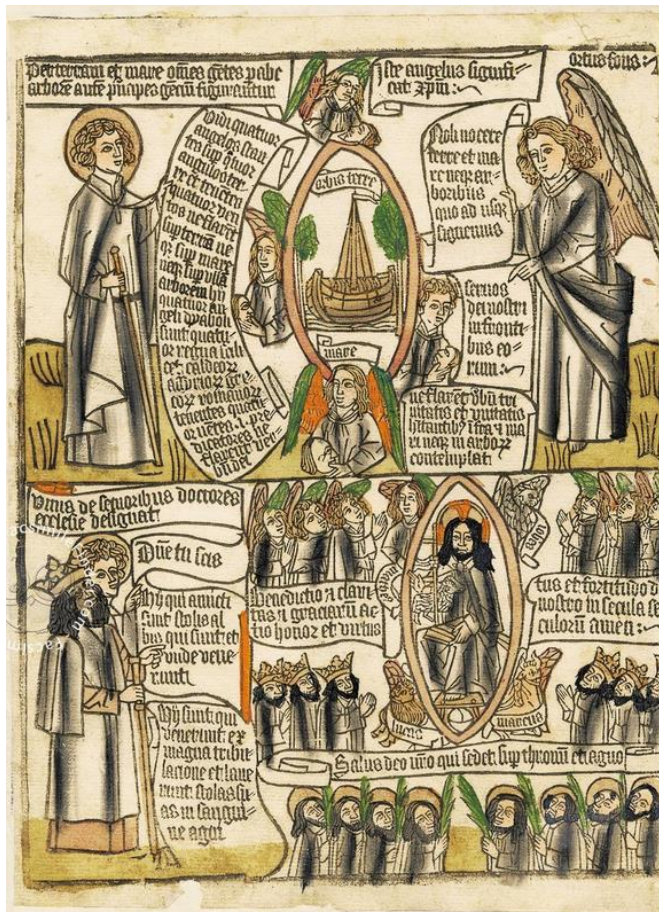 Per terram et mare omnes gētes p abc
arborē ante pncipes gencm̄ figurantur
Iste angelus signifi-
cat xpm̄ :~
ortus solis :~
Vidi quatuor
angelos stan-
tes sup qtuor
angulos ter-
re et tenen-
quatuor ven-
tos ne flaret
sup terrā ne
qz sup mare
neqz sup ullā
arborem hij
quatuor an-
geli dyaboli
sunt quatu-
or regna scili-
cet caldeorz
assiriorz gre-
corz romanorz
tenentes quatu-
or ventos .i. pre-
dicatores ne
flarent ver-
bū dei
orbis terre
Noli nocere
terre et ma-
re neqz ar-
boribus
quo ad usqz
signemus
servos
dei nostri
in fronti-
bus eo-
rum :~
mare
ne flaret vbū tri
nitatis et unitatis
hītantibz ī tra z ma
ri neqz in arborz
contemplati
Unus de senioribus doctores
ecclesie designat
Dn̄e tu scis
Hij qui amicti
sunt stolis al
bis qui sunt et
unde vene
runt
Hij sunt qui
venerunt ex
magna tribu
lacione et lave
runt stolas su
as in sangui
ne agni
Benedictio z clari
tas z graciarū ac
tio honor et virtus
tus et fortitudo d
nostro in secula se
culorū amen :~
lucas
marcus
Salus deo nr̄o qui sedet sup thronū et agno